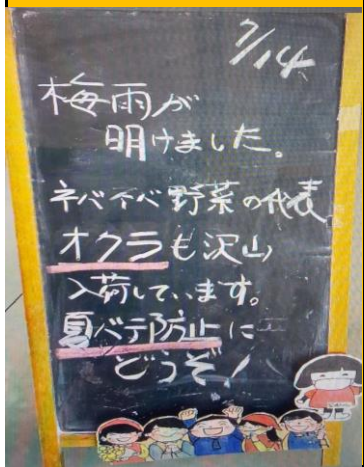 7/14
梅雨が
明けました。
ネバネバ野菜の代表
オクラも沢山
入荷しています。
夏バテ防止に
どうぞ！